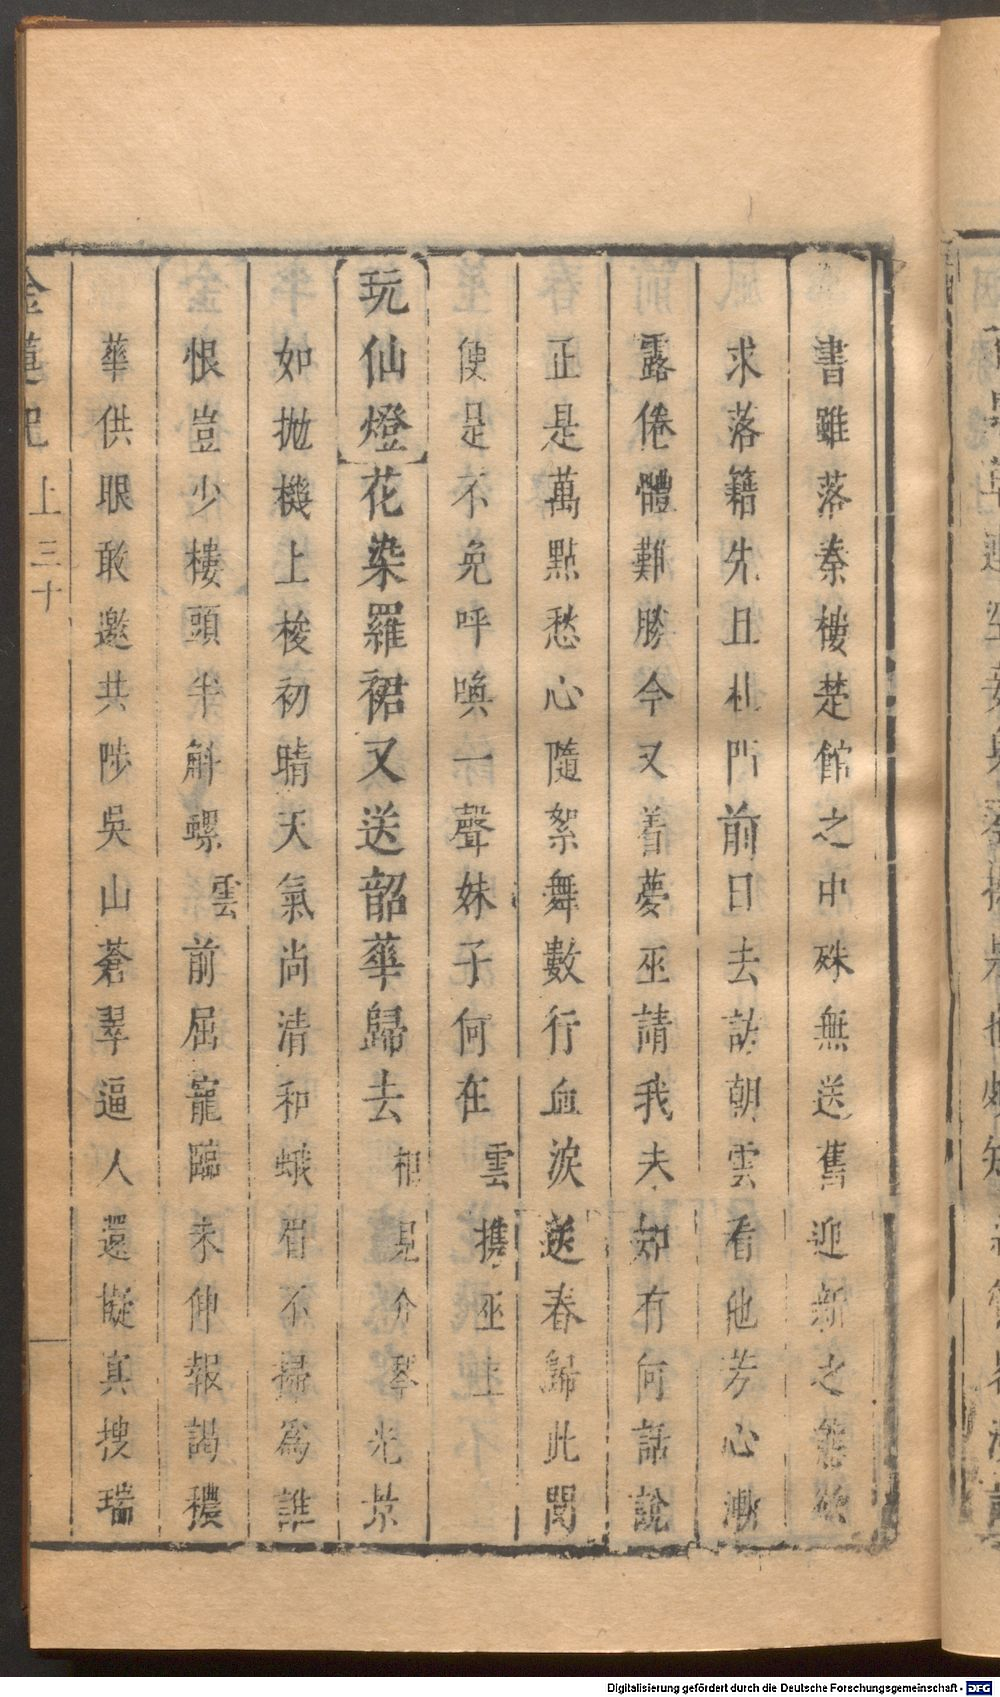 書雖落秦樓楚館之中殊無送舊迎新之態欲
求落籍先且杜門前日去訪朝雲看他芳心漸
露倦體難勝今又着夢巫請我夫却有何話說
正是萬點愁心隨絮舞數行血淚送春歸此間
便是不免呼喚一聲妹子何在雲携巫上
玩仙燈花染羅裙又送韶華歸去相見介琴光景
如拋機上梭初晴天氣尚清和蛾眉不掃為誰
恨豈少樓頭半斛螺雲前屈寵臨未伸報謁穠
華供眼敢邀共陟吳山蒼翠逼人還擬真搜瑞
金蓮記 上 三十
Digitalisierung gefördert durch die Deutsche Forschungsgemeinschaft - DFG